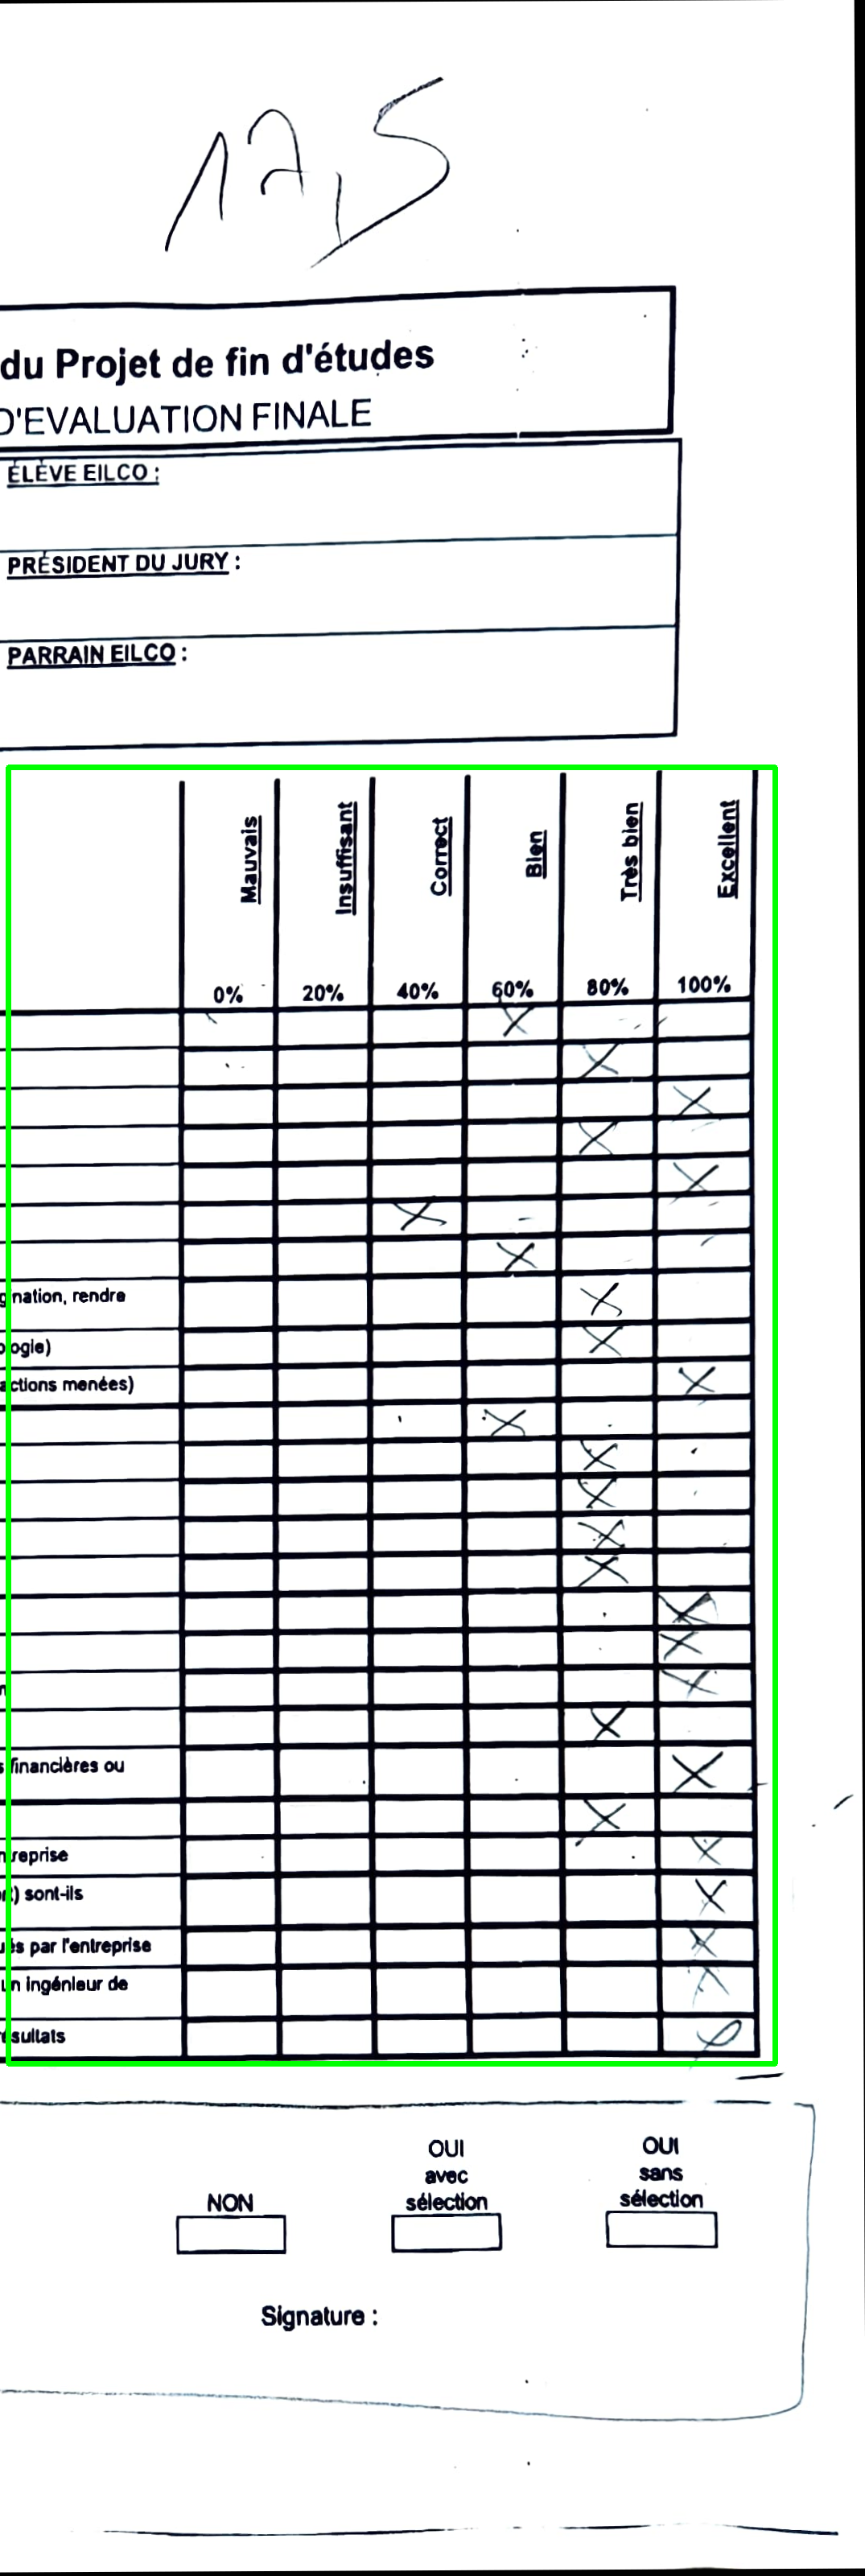 17,5
du Projet de fin d'études
D'EVALUATION FINALE
ÉLÈVE EILCO :
PRÉSIDENT DU JURY :
PARRAIN EILCO :
Mauvais Insuffisant Correct Bien Très bien Excellent
0% 20% 40% 60% 80% 100%
X
X
X
X
X
X
X
gination, rendre X
ologie) X
actions menées) X
X
X
X
X
X
X
X
n X
X
s financières ou X
X
ntreprise X
) sont-ils X
ués par l'entreprise X
un ingénieur de X
ésultats
NON OUI avec sélection OUI sans sélection
Signature :